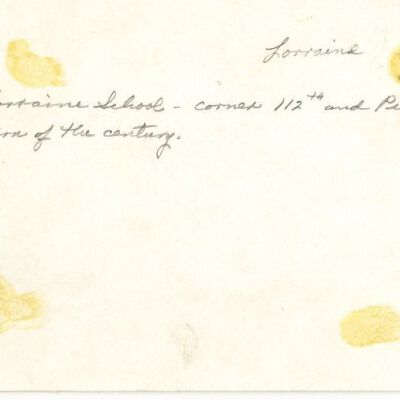 Lorraine
orraine School - corner 112th and Pe
rn of the century.